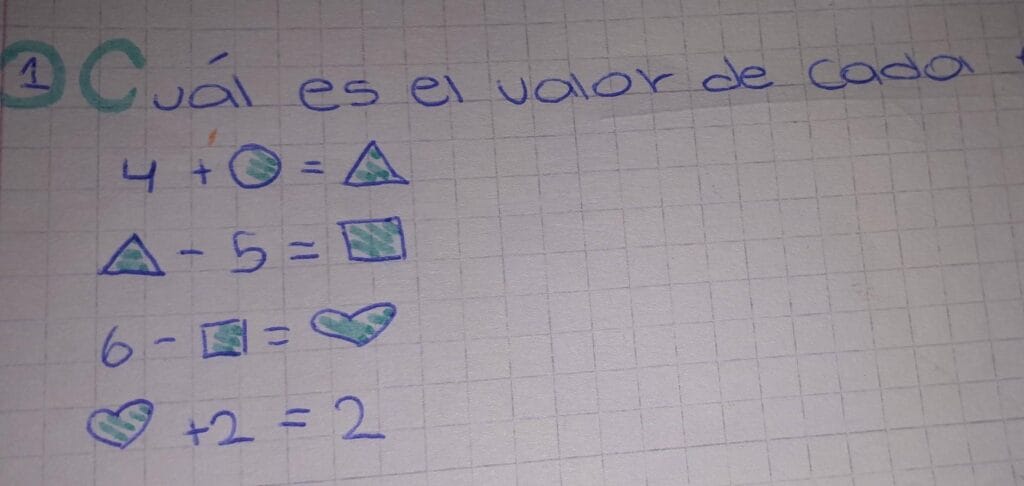 1 Cuál es el valor de cada
4 + ○ = △
△ - 5 = □
6 - □ = ♡
♡ + 2 = 2